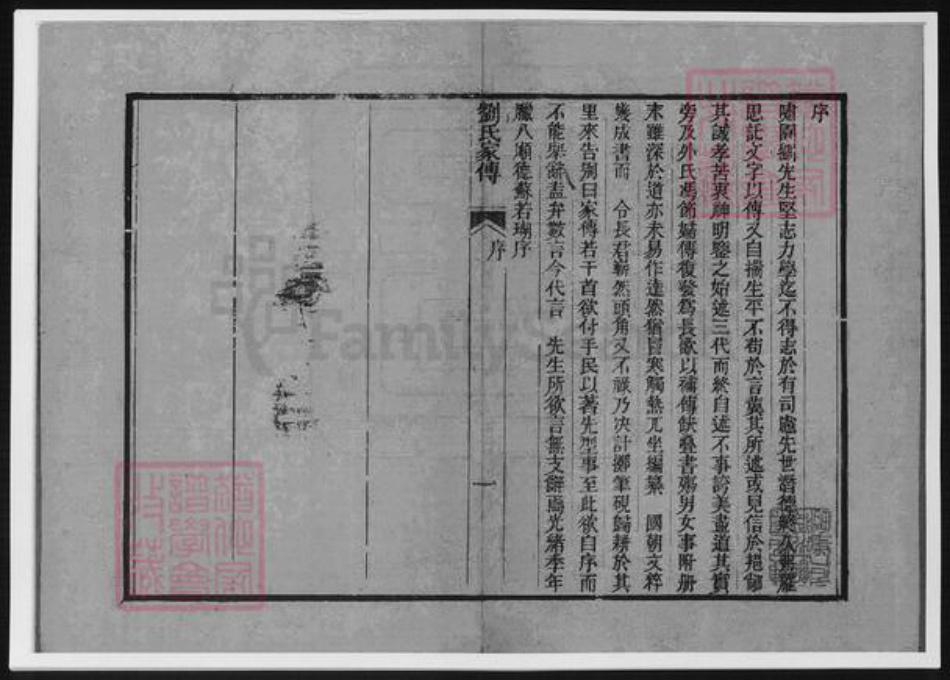 序
劉先生堅志力學迄不得志於有司慮先世潛德終
思託文字以傳又自揣生平不苟於言冀其所述或見信於
其誠孝苦衷神明鑒之始述三代而終自述不事誇美盡道其實
旁及外氏馮節婦傳復發爲長歌以補傳缺疊書殤男女事附册
末雖深於道亦未易作達然猶冒寒觸熱兀坐編纂 國朝文粹
幾成書而 令長君嶄然頭角又不祿乃決計擲筆硯歸耕於其
里來告別曰家傳若干首欲付手民以著先型事至此欲自序而
不能舉辭盍弁數言今代言 先生所欲言無支辭焉光緒季年
臘八順德蘇若瑚序
劉氏家傳 序 一
FamilySearch